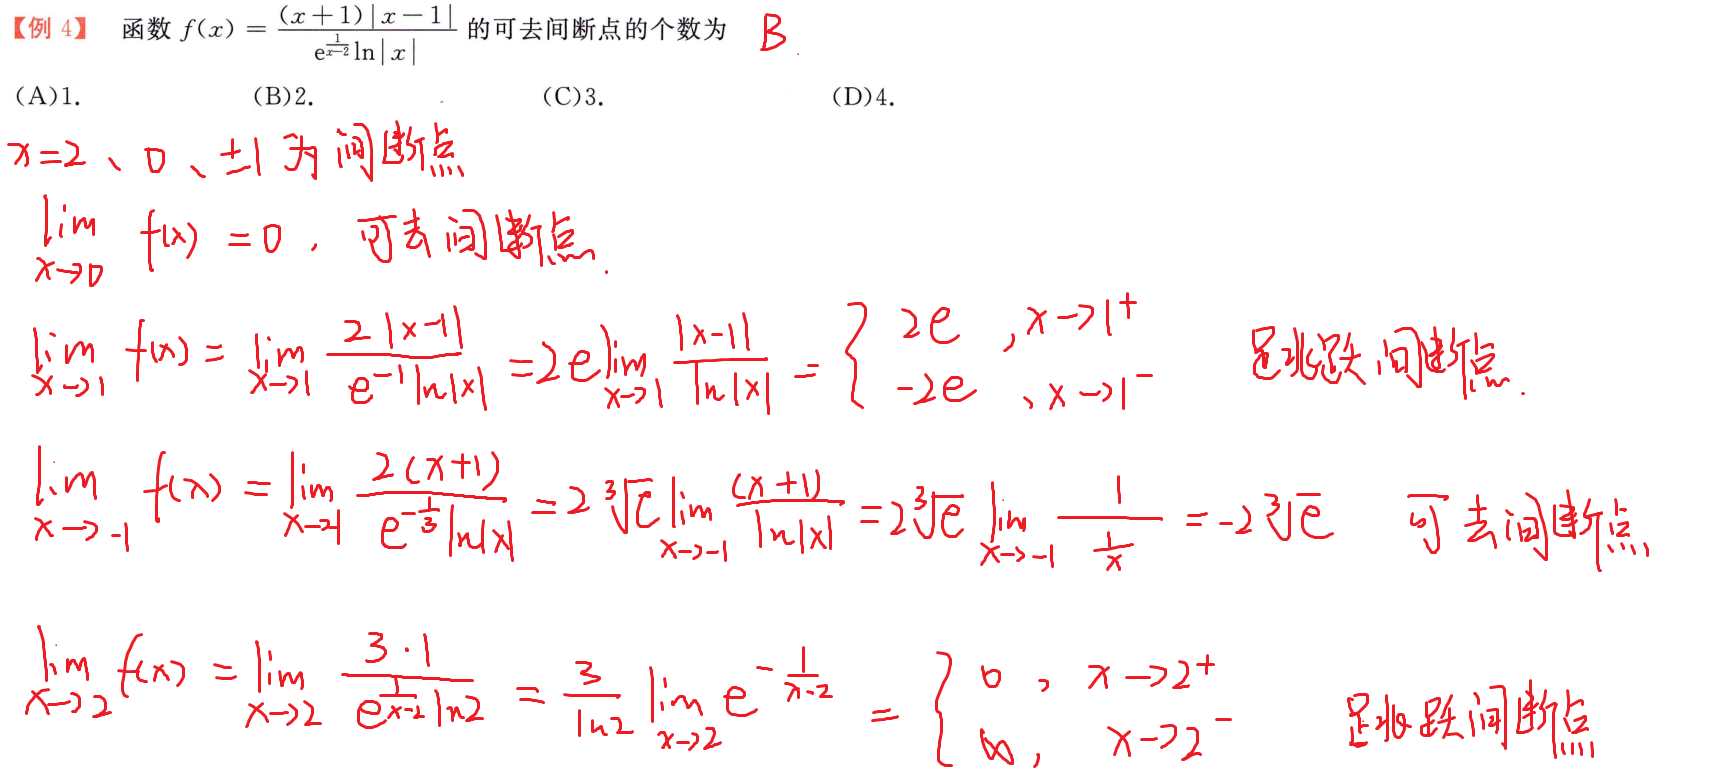 【例 4】 函数 f(x) = \frac{(x+1)|x-1|}{e^{\frac{1}{x-2}}\ln|x|} 的可去间断点的个数为 B
(A)1. (B)2. (C)3. (D)4.
x=2、0、±1 为间断点
\lim_{x→0} f(x) = 0, 可去间断点.
\lim_{x→1} f(x) = \lim_{x→1} \frac{2|x-1|}{e^{-1}\ln|x|} = 2e\lim_{x→1} \frac{|x-1|}{\ln|x|} = \begin{cases} 2e, x→1^+ \\ -2e, x→1^- \end{cases} 跳跃间断点.
\lim_{x→-1} f(x) = \lim_{x→-1} \frac{2(x+1)}{e^{-\frac{1}{3}}\ln|x|} = 2\sqrt[3]{e}\lim_{x→-1} \frac{(x+1)}{\ln|x|} = 2\sqrt[3]{e}\lim_{x→-1} \frac{1}{\frac{1}{x}} = -2\sqrt[3]{e} 可去间断点,
\lim_{x→2} f(x) = \lim_{x→2} \frac{3·1}{e^{\frac{1}{x-2}}\ln 2} = \frac{3}{\ln 2}\lim_{x→2} e^{-\frac{1}{x-2}} = \begin{cases} 0, x→2^+ \\ ∞, x→2^- \end{cases} 跳跃间断点